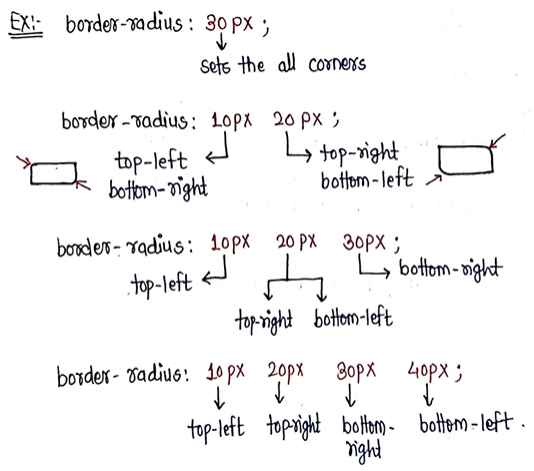 Ex:- border-radius: 30px;
sets the all corners
border-radius: 10px 20px;
top-left top-right
bottom-right bottom-left
border-radius: 10px 20px 30px;
top-left bottom-right
top-right bottom-left
border-radius: 10px 20px 30px 40px;
top-left top-right bottom- bottom-left.
right